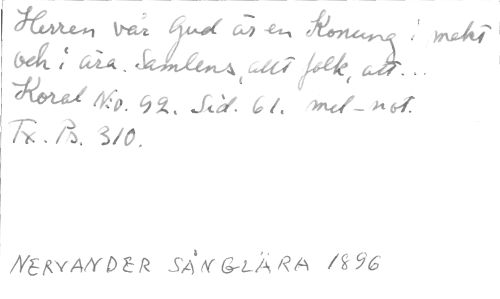 Herren vår Gud är en Konung i makt
och i ära. Samlens, allt folk, att...
Koral N:o. 92. Sid. 61. mel-not.
Tx. Ps. 310.
NERVANDER SÅNGLÄRA 1896